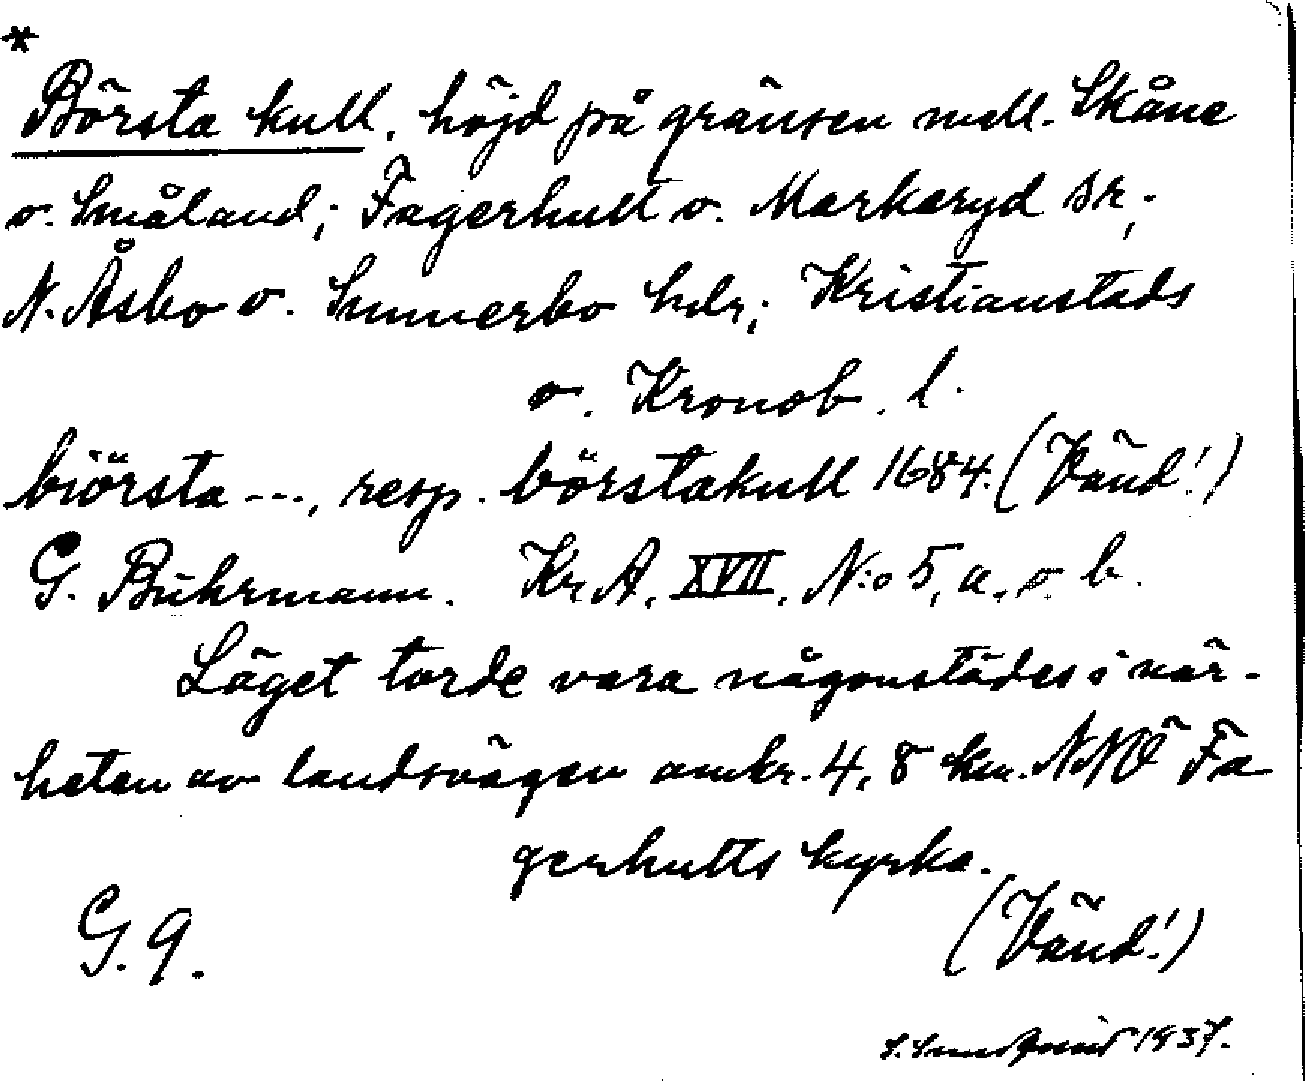 *
Börsta kull, höjd på gränsen mell. Skåne
o. Småland; Fagerhult o. Markaryd sr;
N. Åsbo o. Sunnerbo hdr; Kristianstads
o. Kronob. l.
biörsta ---, resp. börstakull 1684. (Vänd!)
G. Buhrmann. Kr. A. XVII. N:o 5, a. o b.
Läget torde vara någonstädes i när-
heten av landsvägen omkr. 4,8 km. NNÖ Fa
gerhults kyrka.
G. 9. (Vänd!)
1937.